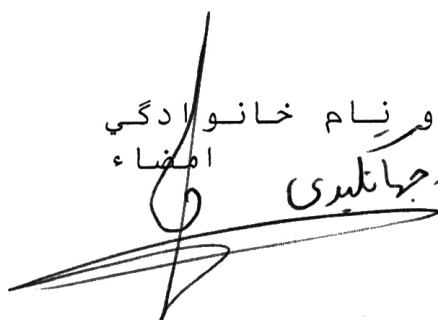 و نام خانوادگي
امضاء
جهانگیری